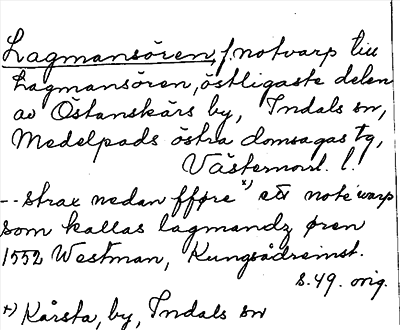 Lagmansören, f. notvarp till
Lagmansören, östligaste delen
av Östanskärs by, Indals sn,
Medelpads östra domsagas tg,
Västernorrl. l.
-- strax nedan fføre x) ett note warp
som kallas lagmandz øren
1552 Westman, Kungsådreinst.
s. 49. orig.
x) Kårsta, by, Indals sn